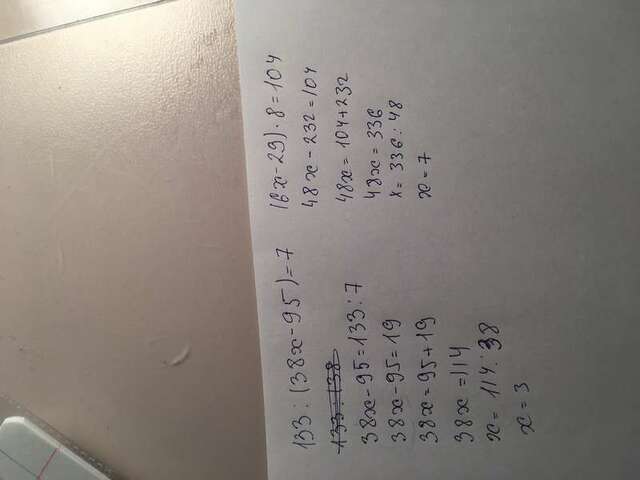 133 : (38x-95)=7
133 : (38
38x-95=133:7
38x-95=19
38x=95+19
38x=114
x= 114:38
x=3
(6x-29)·8=104
48x-232=104
48x=104+232
48x=336
x=336:48
x=7